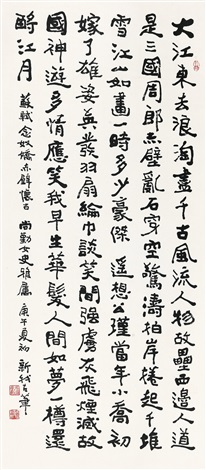 大江東去浪淘盡千古風流人物故壘西邊人道
是三國周郎赤壁亂石穿空驚濤拍岸捲起千堆
雪江山如畫一時多少豪傑遙想公瑾當年小喬初
嫁了雄姿英發羽扇綸巾談笑間強虜灰飛煙滅故
國神遊多情應笑我早生華髮人間如夢一樽還
酹江月 蘇軾念奴嬌赤壁懷古 尚勤女史雅屬 庚午夏初 新我左筆